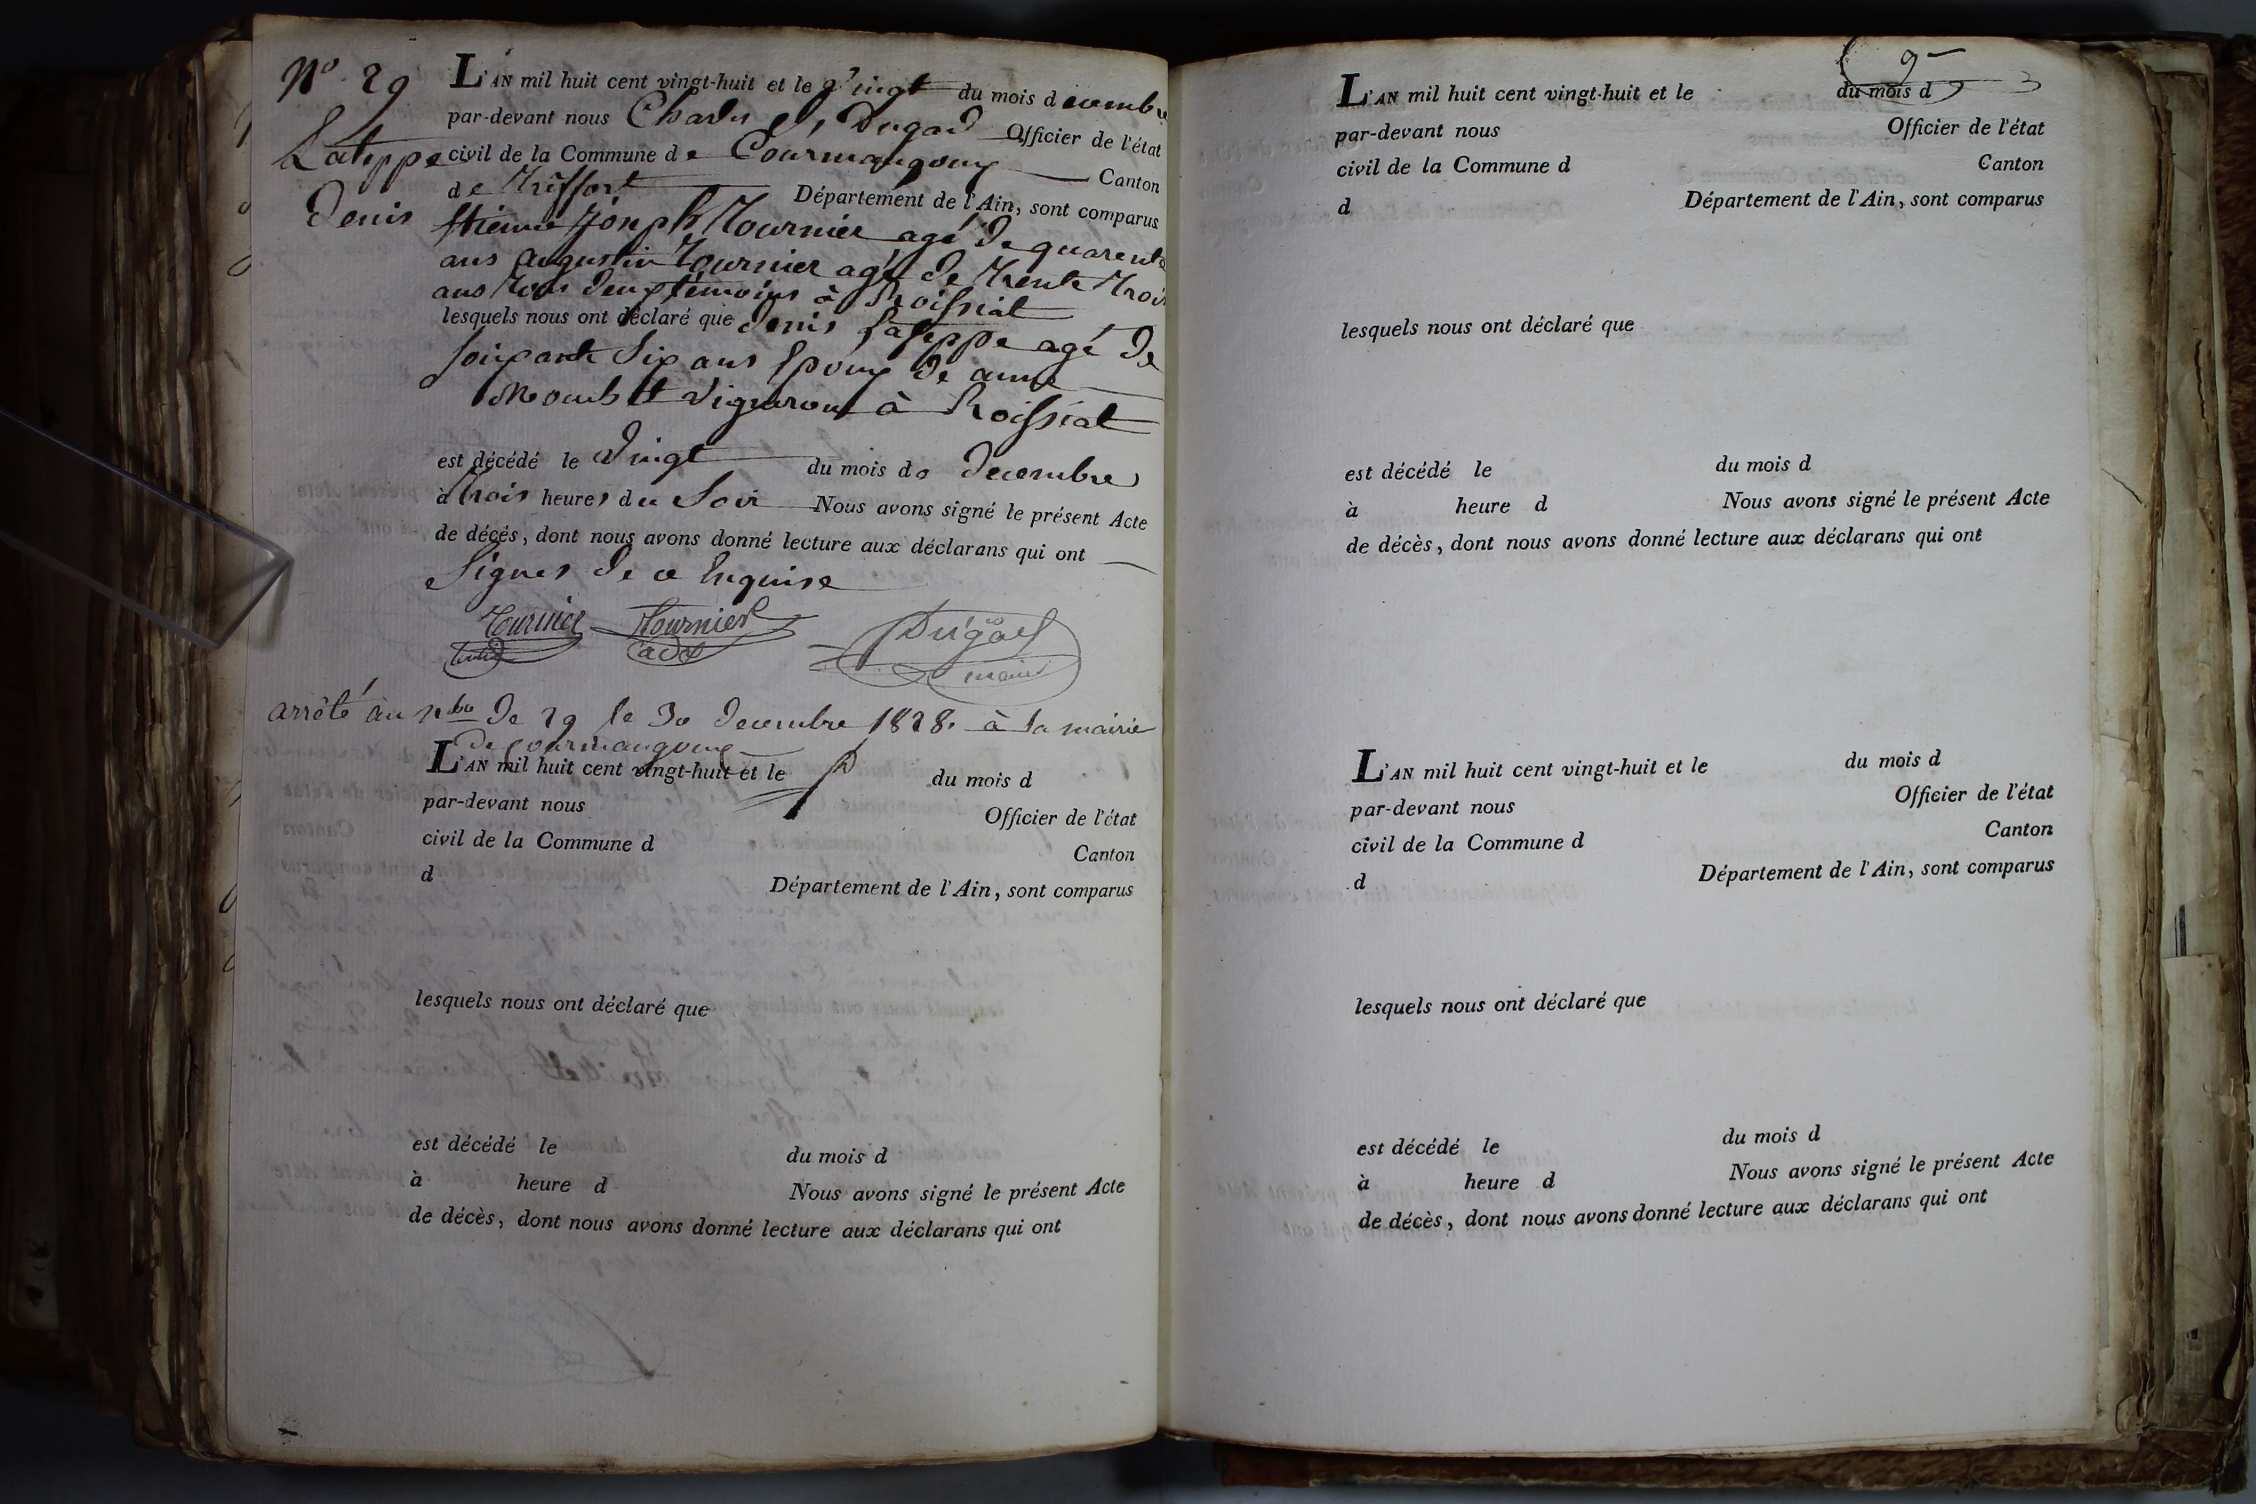 N° 29
Lateppe
Denis
L'AN mil huit cent vingt-huit et le vingt du mois d ecembre
par-devant nous Charles Dugad Officier de l'état
civil de la Commune de Courmangoux Canton
de Treffort Département de l'Ain, sont comparus
Etienne Joseph Tournier agé de quarente
ans Augustin Tournier agé de trente trois
ans tous deux témoins à Roissiat
lesquels nous ont déclaré que Denis Lateppe agé de
soixante six ans Epoux de anne
vigneron à Roissiat
est décédé le vingt du mois de decembre
à trois heures du Soir Nous avons signé le présent Acte
de décès, dont nous avons donné lecture aux déclarans qui ont
Signés de ce Enquise
Tournier Tournier Dugad
cadet maire
arrêté au nbre de 29 le 30 decembre 1828. à la mairie
de Courmangoux
L'AN mil huit cent vingt-huit et le du mois d
par-devant nous Officier de l'état
civil de la Commune d Canton
d Département de l'Ain, sont comparus
lesquels nous ont déclaré que
est décédé le du mois d
à heure d Nous avons signé le présent Acte
de décès, dont nous avons donné lecture aux déclarans qui ont
9
L'AN mil huit cent vingt-huit et le du mois d
par-devant nous Officier de l'état
civil de la Commune d Canton
d Département de l'Ain, sont comparus
lesquels nous ont déclaré que
est décédé le du mois d
à heure d Nous avons signé le présent Acte
de décès, dont nous avons donné lecture aux déclarans qui ont
L'AN mil huit cent vingt-huit et le du mois d
par-devant nous Officier de l'état
civil de la Commune d Canton
d Département de l'Ain, sont comparus
lesquels nous ont déclaré que
est décédé le du mois d
à heure d Nous avons signé le présent Acte
de décès, dont nous avons donné lecture aux déclarans qui ont